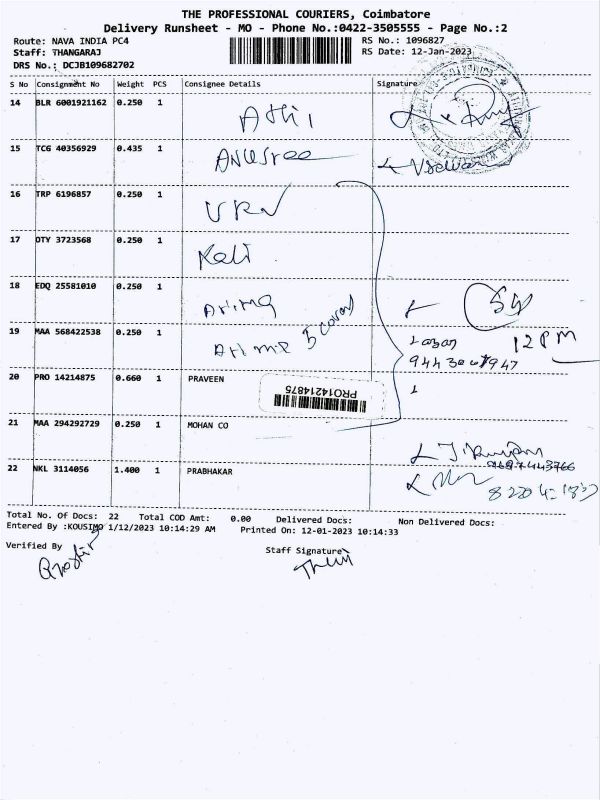 THE PROFESSIONAL COURIERS, Coimbatore
Delivery Runsheet - MO - Phone No.:0422-3505555 - Page No.:2
Route: NAVA INDIA PC4 RS No.: 1096827
Staff: THANGARAJ RS Date: 12-Jan-2023
DRS No.: DCJB109682702
S No Consignment No Weight PCS Consignee Details Signature
14 BLR 6001921162 0.250 1 Athi
15 TCG 40356929 0.435 1 ANUSree
16 TRP 6196857 0.250 1 VRV
17 OTY 3723568 0.250 1 Kali
18 EDQ 25581010 0.250 1
19 MAA 568422538 0.250 1 5 cover 12 PM
20 PRO 14214875 0.660 1 PRAVEEN
PRO14214875
21 MAA 294292729 0.250 1 MOHAN CO
22 NKL 3114056 1.400 1 PRABHAKAR
Total No. Of Docs: 22 Total COD Amt: 0.00 Delivered Docs: Non Delivered Docs:
Entered By :KOUSIMO 1/12/2023 10:14:29 AM Printed On: 12-01-2023 10:14:33
Verified By Staff Signature